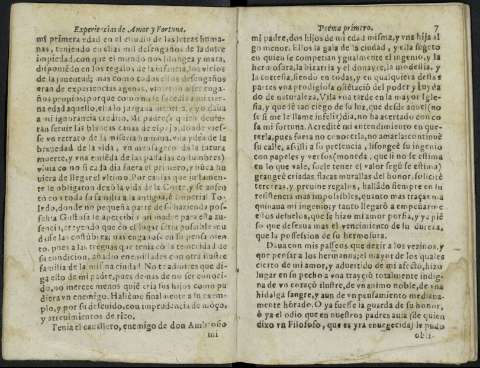 Experiencias de Amor y Fortuna,
mi primera edad en el estudio de las letras huma-
nas, teniendo en ellas mil desengaños de la dulce
impiedad, con que el mundo nos lisongea y mata,
disponiedo en los regalos de la infancia, los vicios
de la juventud; mas como todos estos desengaños
eran de experiencias agenas, vinieron a ser enga-
ños propios, porque como no
edad aquello,
a mi ignorancia credito. Mi padre, a quien deste-
avan sentir las blancas canas de el pelo, donde vee-
se un retrato de la miseria humana, una idea de la
brevedad de la vida, un mensagero de la futura
muerte, y una emienda de las passadas costumbres)
vivia co no si cada dia fuera el primero, y nunca hu-
viera de llegar el ultimo. Por causas que justamen-
te le obligaron dexò la vida de la Corte, y se ausen
tò con toda su familia a la antigua, è Imperial To-
ledo, donde no pequeña parte de su hazienda pos-
seìa. Gustosa se apercibiò mi madre para esta au-
sencia, creyendo que con el lugar seria possible
diesse las costumbres; mas engañose en su pensamien
to, pues a las treguas que tenia con la serenidad de
su condicion, añadio enemistades con otra ilustre
familia de la misma ciudad. No te admires que di-
ga esto de mi padre, pues demas de no ser conoci-
do, no merece menos quiē cria sus hijos como pu
diera un enemigo. Halleme finalmente a su exem-
plo, y por su descuido, con imprudencia de moço,
y atrevimientos de rico.
Tenia el cavallero, enemigo de don Ambrosio
mi
Poema primero. 7
mi padre, dos hijos de mi edad misma, y una hija al
go menor. Ellos la gala de la ciudad, y ella sugeto
en quien se competian igualmente el ingenio, y la
hermosura, la bizarria y el donayre, la modestia, y
la cortesia, siendo en todas, y en qualquiera destas
partes una prodigiosa ostētaciō del poder y cuyda
do de naturaleza. Vila una tarde en la mayor Igle-
sia, y quede tan ciego de su luz, que desde aquel (no
se si me le llame infeliz) dia, no ha acertado con co
sa mi fortuna. Acredité mi entendimiento en que-
rerla, pues fuera no conocerla, no amarla: continuè
su calle, assisti a su presencia, lisongeè su ingenio
con papeles y versos (moneda, que si no se estima
en lo que vale, suele tener el valor segun se estima)
grangeè criadas, flacas murallas del honor, solicitè
terceras, y previne regalos, hallādo siempre en su
resistencia mas impossibles, quanto mas traças ma
quinava mi ingenio; tanto llegarō a empeñarme a-
quellos desvelos, que se hizo mi amor porfia, y ya pie
so que deseava mas el vencimiento de su dureza,
que la possession de su hermosura.
Davan mis passeos que dezir a los vezinos, y
que pensar a los hermanos; el mayor de los quales
cierto de mi amor, y advertido de mi afecto, hizo
lugar en su pecho a una traycō totalmente indig-
na de un coraçō ilustre, de un animo noble, de una
hidalga sangre, y aun de un pensamiento mediana-
mente hōrado. O ya fuesse la guarda de su honor,
ò ya el odio que en nuestros padres avia (de quien
dixo un Filosofo, que es yra envegecida) le pudo
obli-